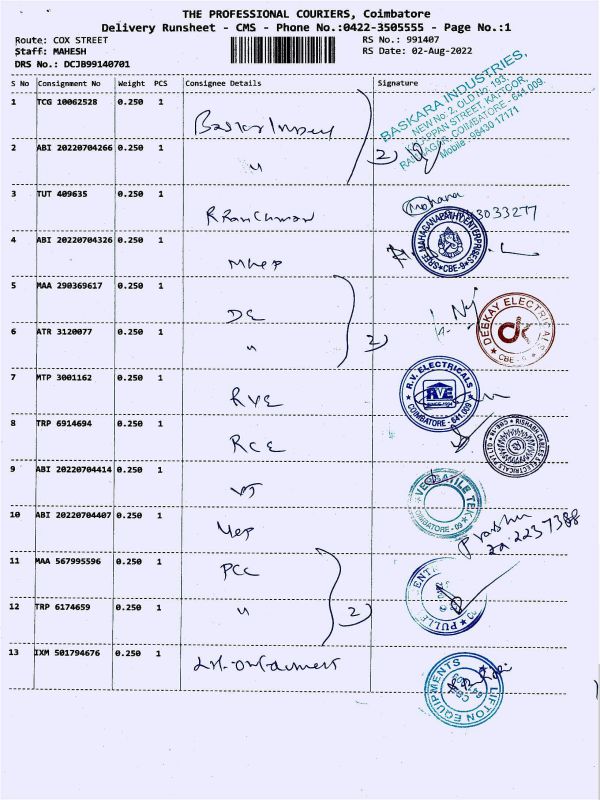 THE PROFESSIONAL COURIERS, Coimbatore
Delivery Runsheet - CMS - Phone No.:0422-3505555 - Page No.:1
Route: COX STREET RS No.: 991407
Staff: MAHESH RS Date: 02-Aug-2022
DRS No.: DCJB99140701
S No Consignment No Weight PCS Consignee Details Signature
BASKARA INDUSTRIES,
NEW No. 2, OLD No. 193,
COIMBATORE - 641 009.
Mobile : 98430 17171
1 TCG 10062528 0.250 1
2 ABI 20220704266 0.250 1 " 2
3 TUT 409635 0.250 1 Mohana
SREE MAHAGANAPATHY ENTERPRISES
★ CBE-9 ★
4 ABI 20220704326 0.250 1
5 MAA 290369617 0.250 1 DE
DEEKAY ELECTRICALS
dk
★ CBE - 9 ★
6 ATR 3120077 0.250 1 " 2
7 MTP 3001162 0.250 1 RVE
R.V. ELECTRICALS
RVE
COIMBATORE - 641 009
8 TRP 6914694 0.250 1 RCE
9 ABI 20220704414 0.250 1 VT
VERSATILE TEK
COIMBATORE - 09
10 ABI 20220704407 0.250 1 Prabhu
11 MAA 567995596 0.250 1 PCC
12 TRP 6174659 0.250 1 " 2
13 IXM 501794676 0.250 1
LIFTON EQUIPMENTS